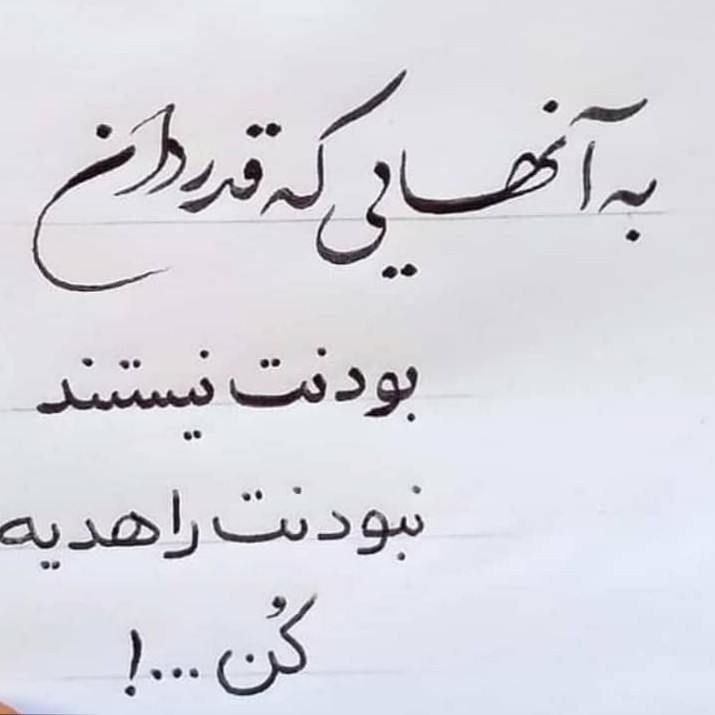 به آنهایی که قدردان
بودنت نیستند
نبودنت را هدیه
کُن ...!